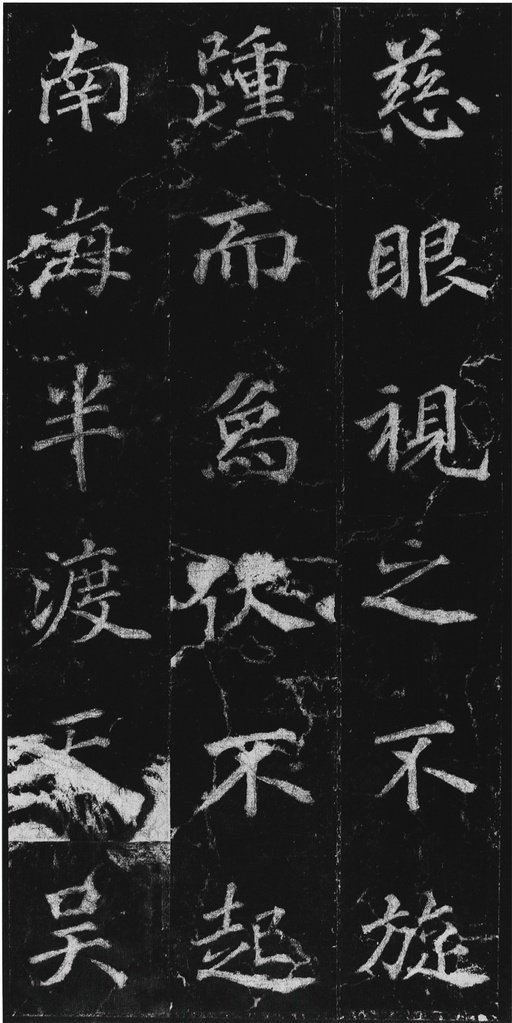 慈眼視之不旋
踵而爲伏不起
南海半渡天吴